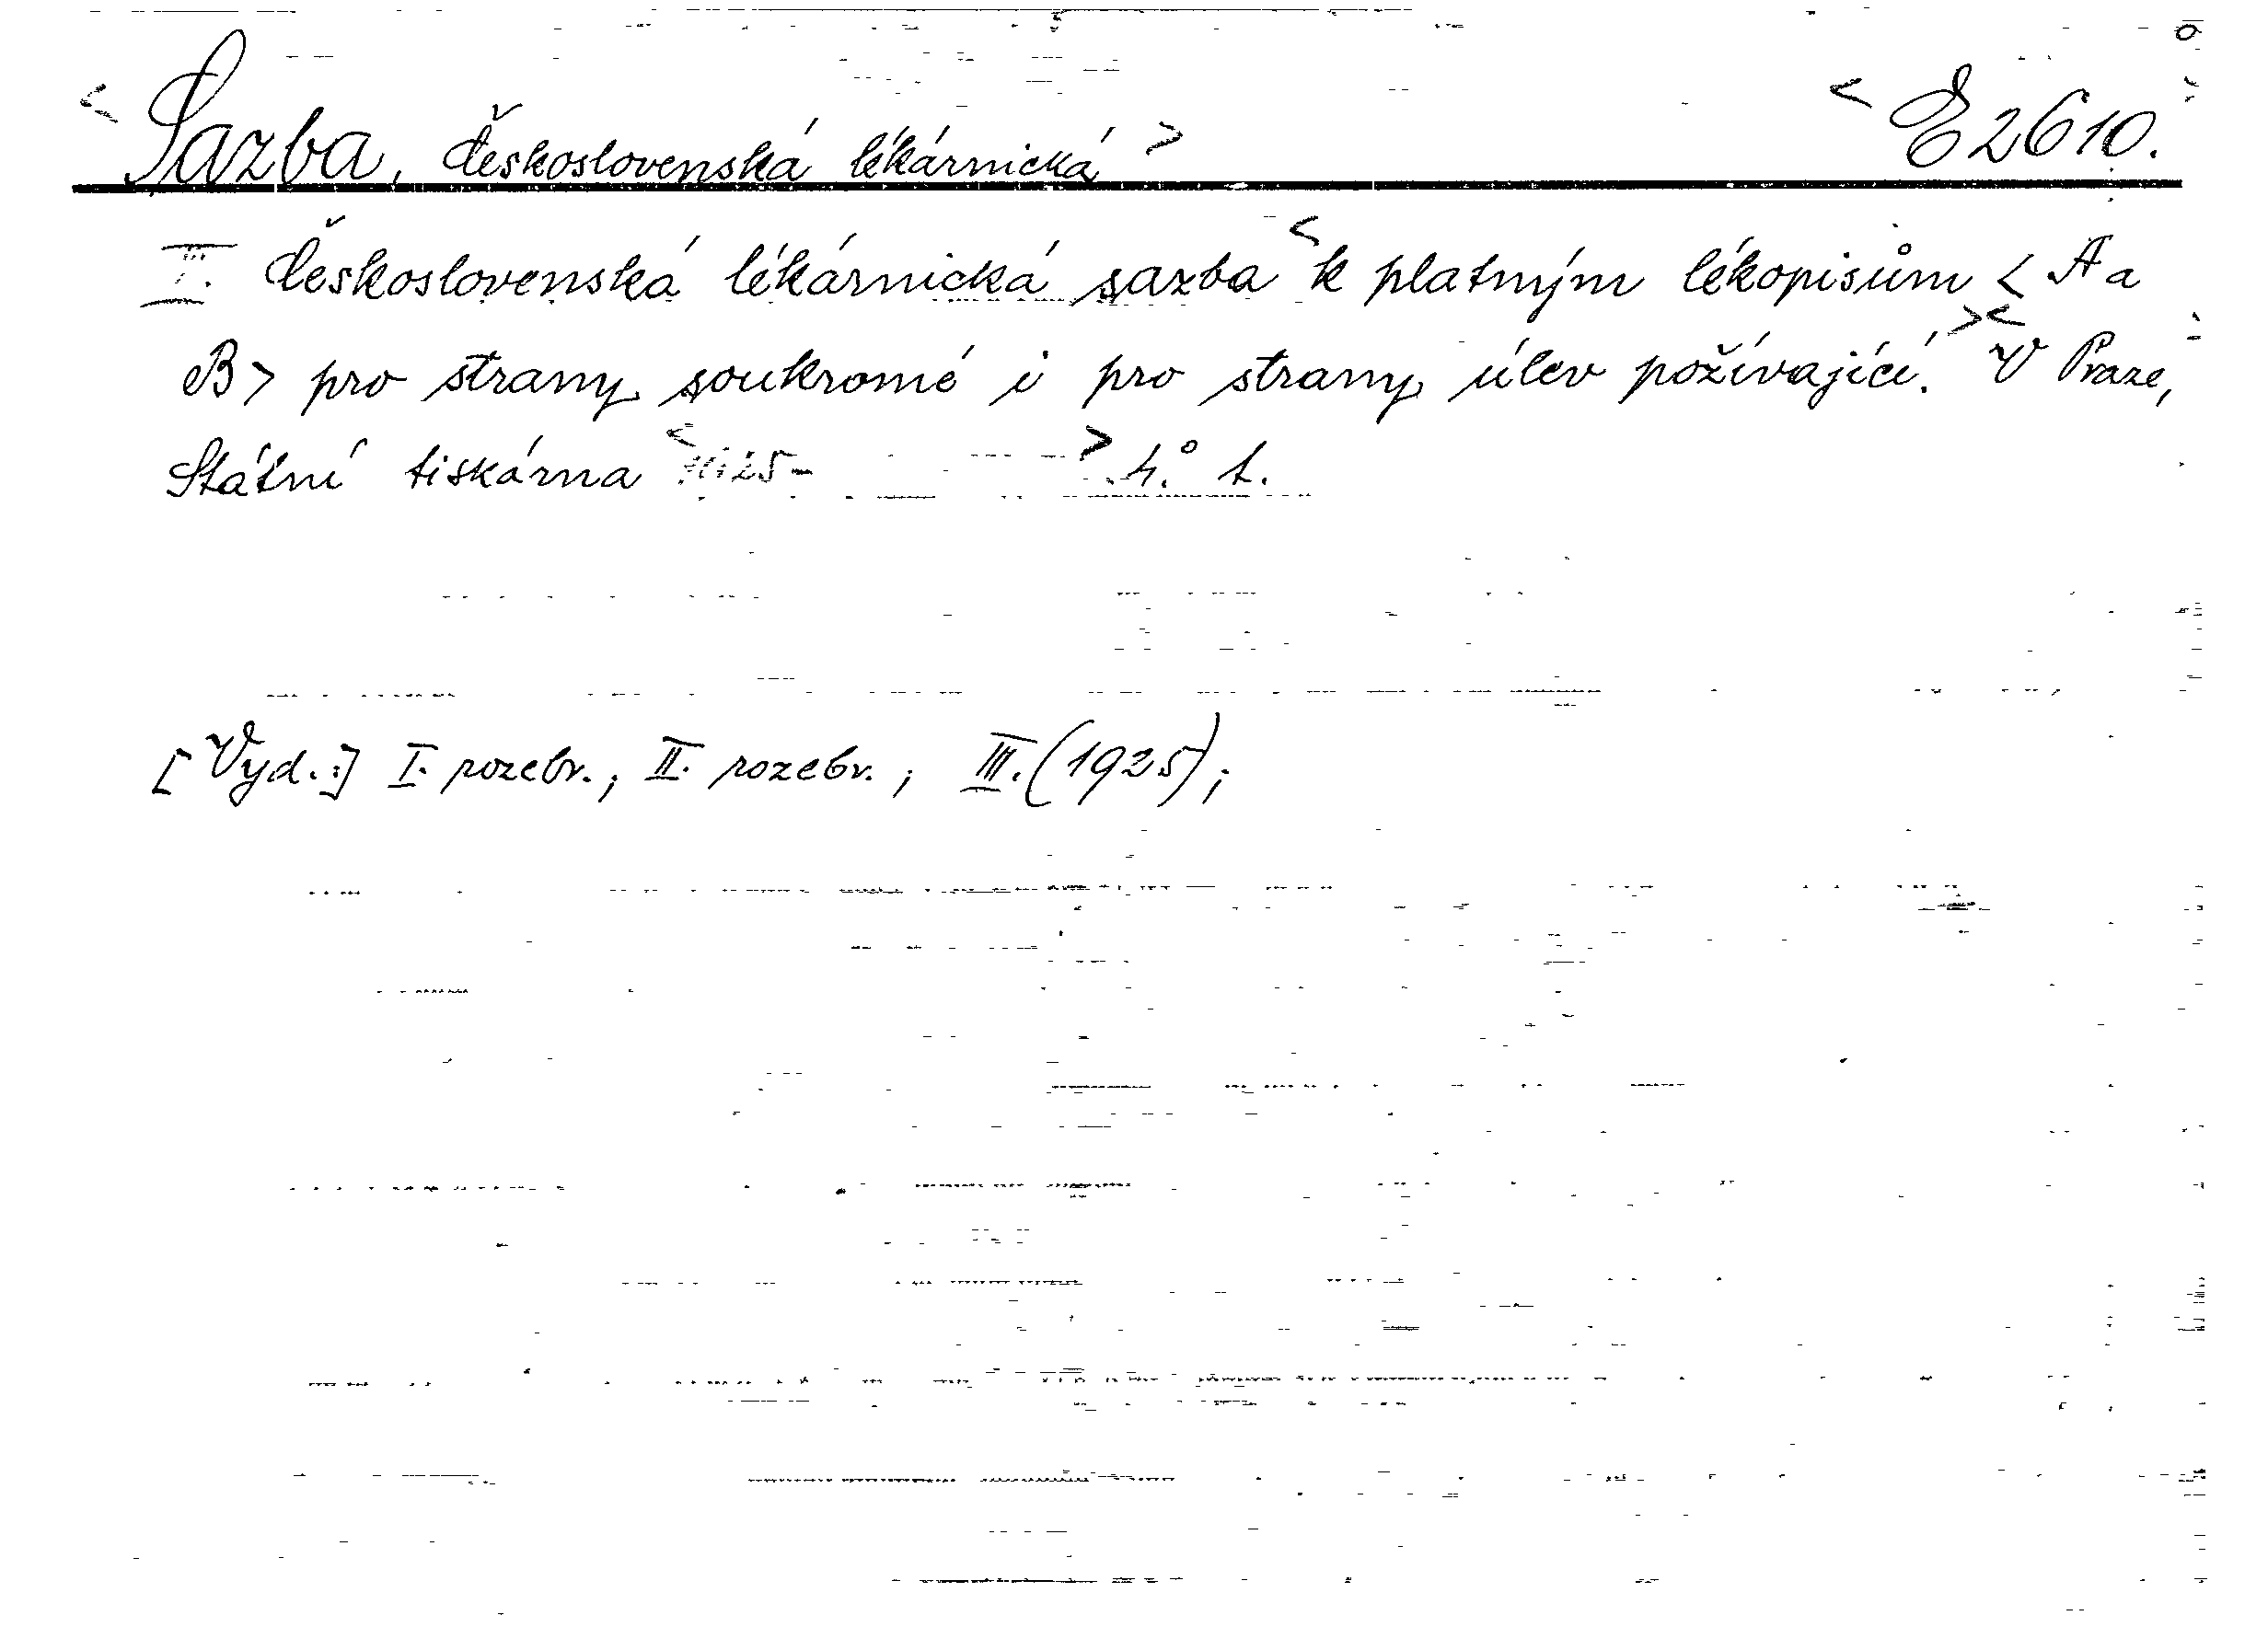 < Sazba, Československá lékárnická > < E 2610. >
I. Československá lékárnická sazba < k platným lékopisům < A a
B > pro strany soukromé i pro strany úlev požívající. > < V Praze,
Státní tiskárna < 1925- > 4.° 1.
[Vyd.:] I. rozebr.; II. rozebr.; III. (1925);